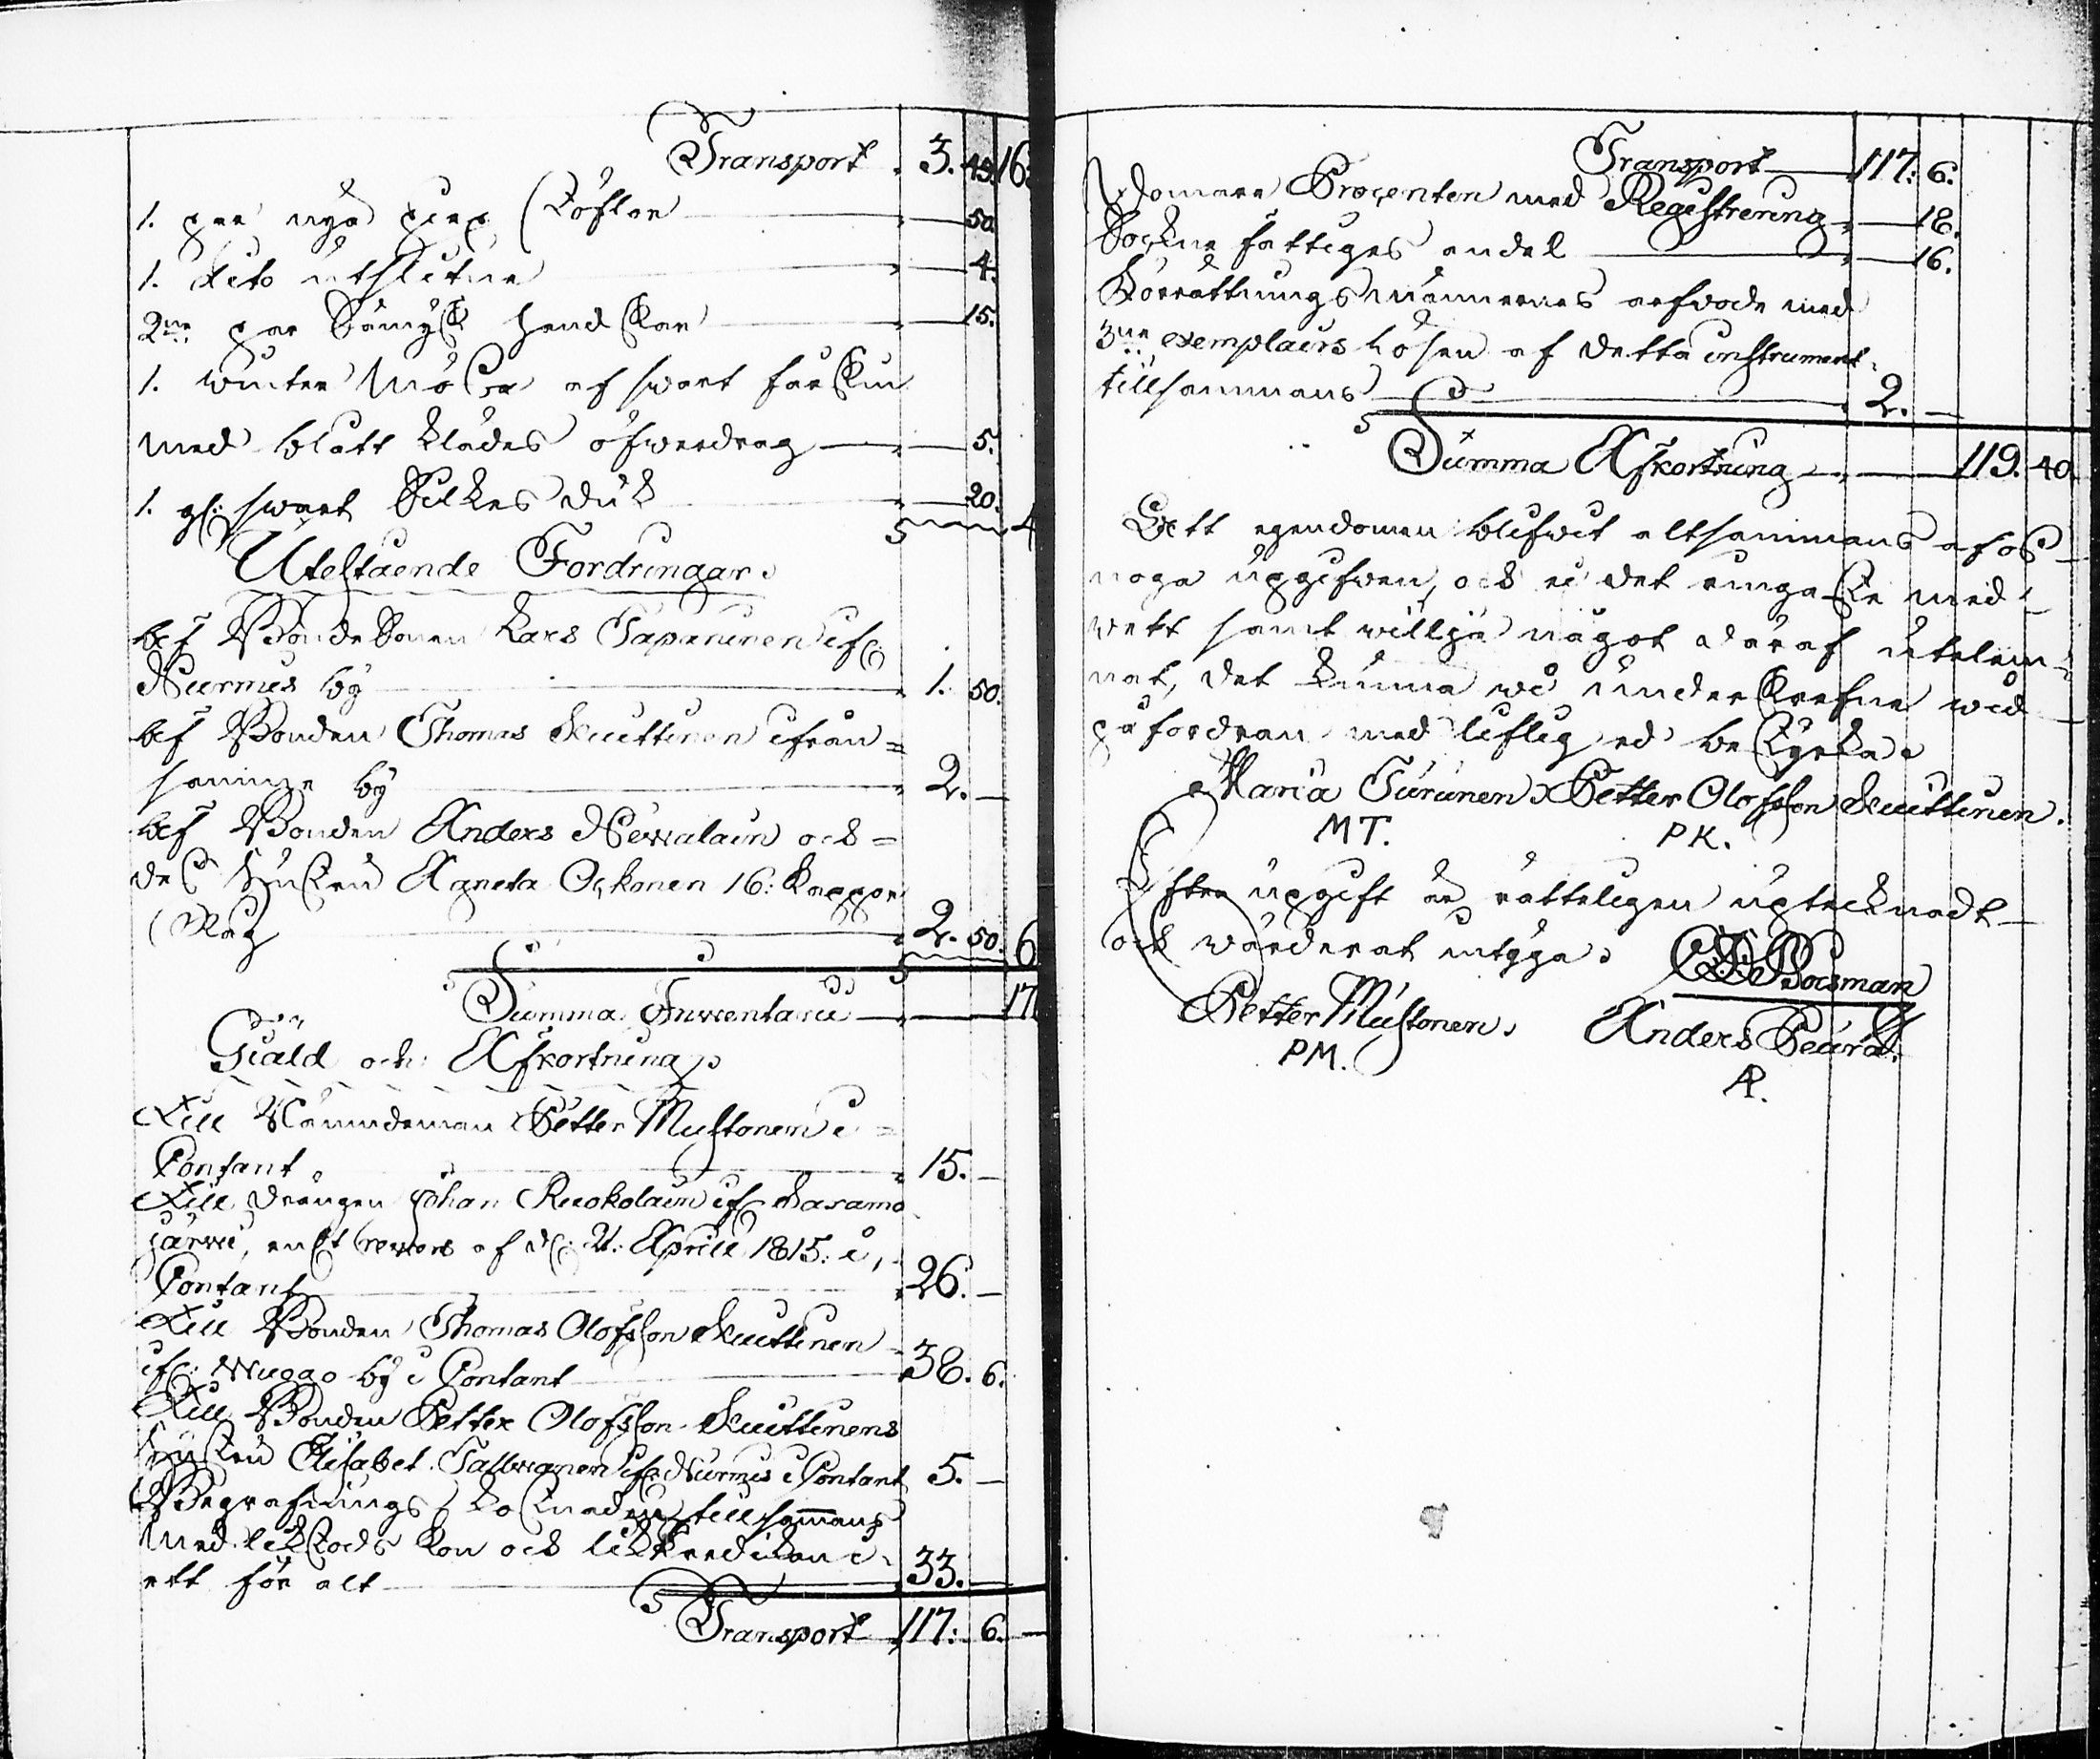 Transport 3. 49. 16:
1. par nya piex Stöflor 50.
1. dito utslitne 4.
2ne par Sämsk handskar 15.
1. winter Mössa af swart fårskin
med blått klädes öfwerdrag 5.
1. gl: swart Silkes duk 20. 4
Utestående Fordringar.
hos BondeSonen Lars Tapaninen if:
Nurmis by 1. 50.
hos Bonden Thomas Kuittinen ifrån
samma by 2. —
hos Bonden Anders Newalain och
dess Hustru Agneta Ockonen 16: Kappor
Råg 2. 50. 6
Summa Inventarii 17
Gäld och Afkortning.
Till Nämndeman Petter Mustonen i
Contant 15. —
Till drängen Johan Ruokolain if: Saramo
järwi, enligt revers af d: 21: Aprill 1815: i,
Contant 26. —
Till Bonden Thomas Olofsson Kuittinen
if: Wuggo by i Contant 38. 6.
Till Bonden Petter Olofsson Kuittinens
Hustru Elisabet Tallwanen if: Nurmis i Contant 5. —
Begrafnings kostnaden tillsammans
med likstods kon och likpredikan i
ett för alt 33. —
Transport 117: 6. —
Transport 117: 6.
Domare Procenten med Registrering 18.
Sockne fattiges andel 16.
Förrättningsmännernes arfwode med
3ne exemplairs lösen af detta instrument
tillsammans 2. —
Summa Afkortning 119. 40.
Att egendomen blifwit altsammans af oss
noga upgifwen, och ei det ringaste med
wett samt willja något däraf utelem-
nat, det kunna wi underskrefne wid
påfordran med liflig ed bestyrka.
Maria Turunen Petter Olofsson Kuittinen.
MT. PK.
Efter upgift är rätteligen uptecknadt
och wärderat intyga.
Bosman
Petter Mustonen. Anders Peura.
PM. AP.